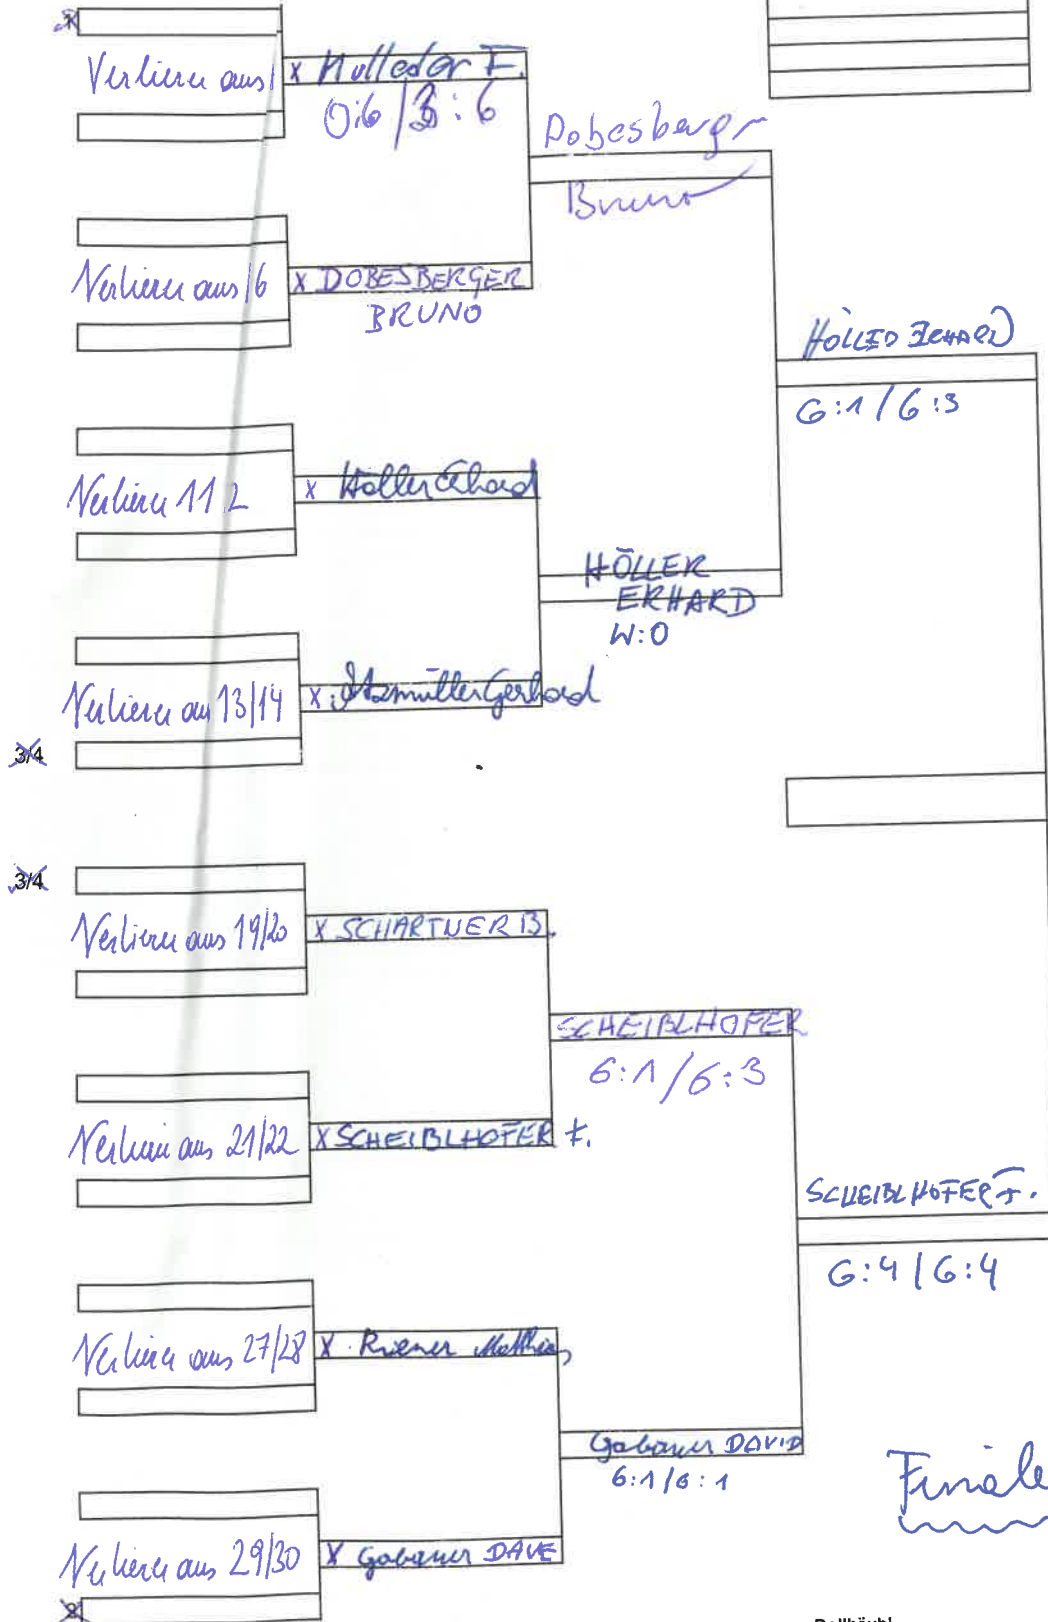 Verlierer aus 1
x Mulleder F.
0:6 / 3:6
Dobesberger
Bruno
Verlierer aus 16
x DOBESBERGER
BRUNO
HÖLLER ERHARD
6:1 / 6:3
Verlierer 11 2
x Höller Erhard
HÖLLER
ERHARD
W:0
Verlierer aus 13/14
x Atzmüller Gerhard
3/4
3/4
Verlierer aus 19/20
x SCHARTNER B.
SCHEIBLHOFER
6:1 / 6:3
Verlierer aus 21/22
x SCHEIBLHOFER F.
SCHEIBLHOFER F.
6:4 | 6:4
Verlierer aus 27/28
x Riener Matthias
Gabauer DAVID
6:1 / 6:1
Finale
Verlierer aus 29/30
x Gabauer DAVE